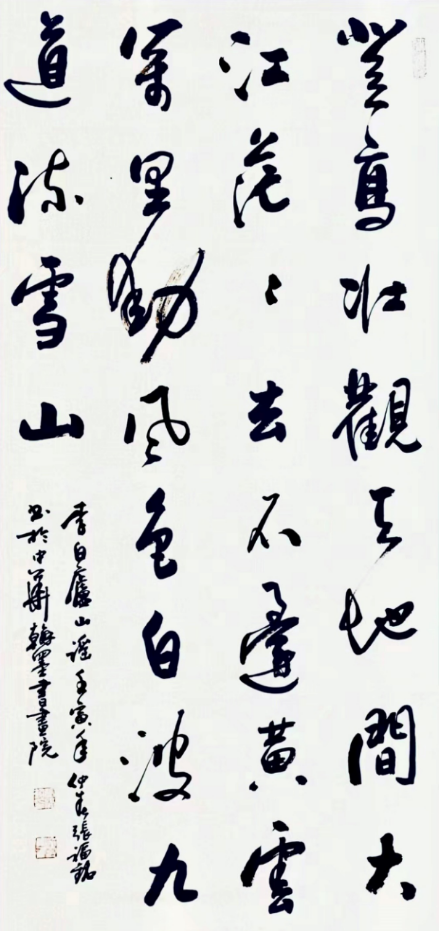 登高壯觀天地間大
江茫〻去不還黃雲
萬里動風色白波九
道流雪山
李白廬山謠壬寅年仲春張福銘
書於中華翰墨書畫院